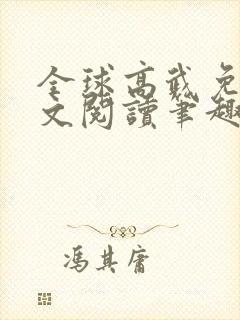 全球高武免
文閱讀筆趣
馮其庸